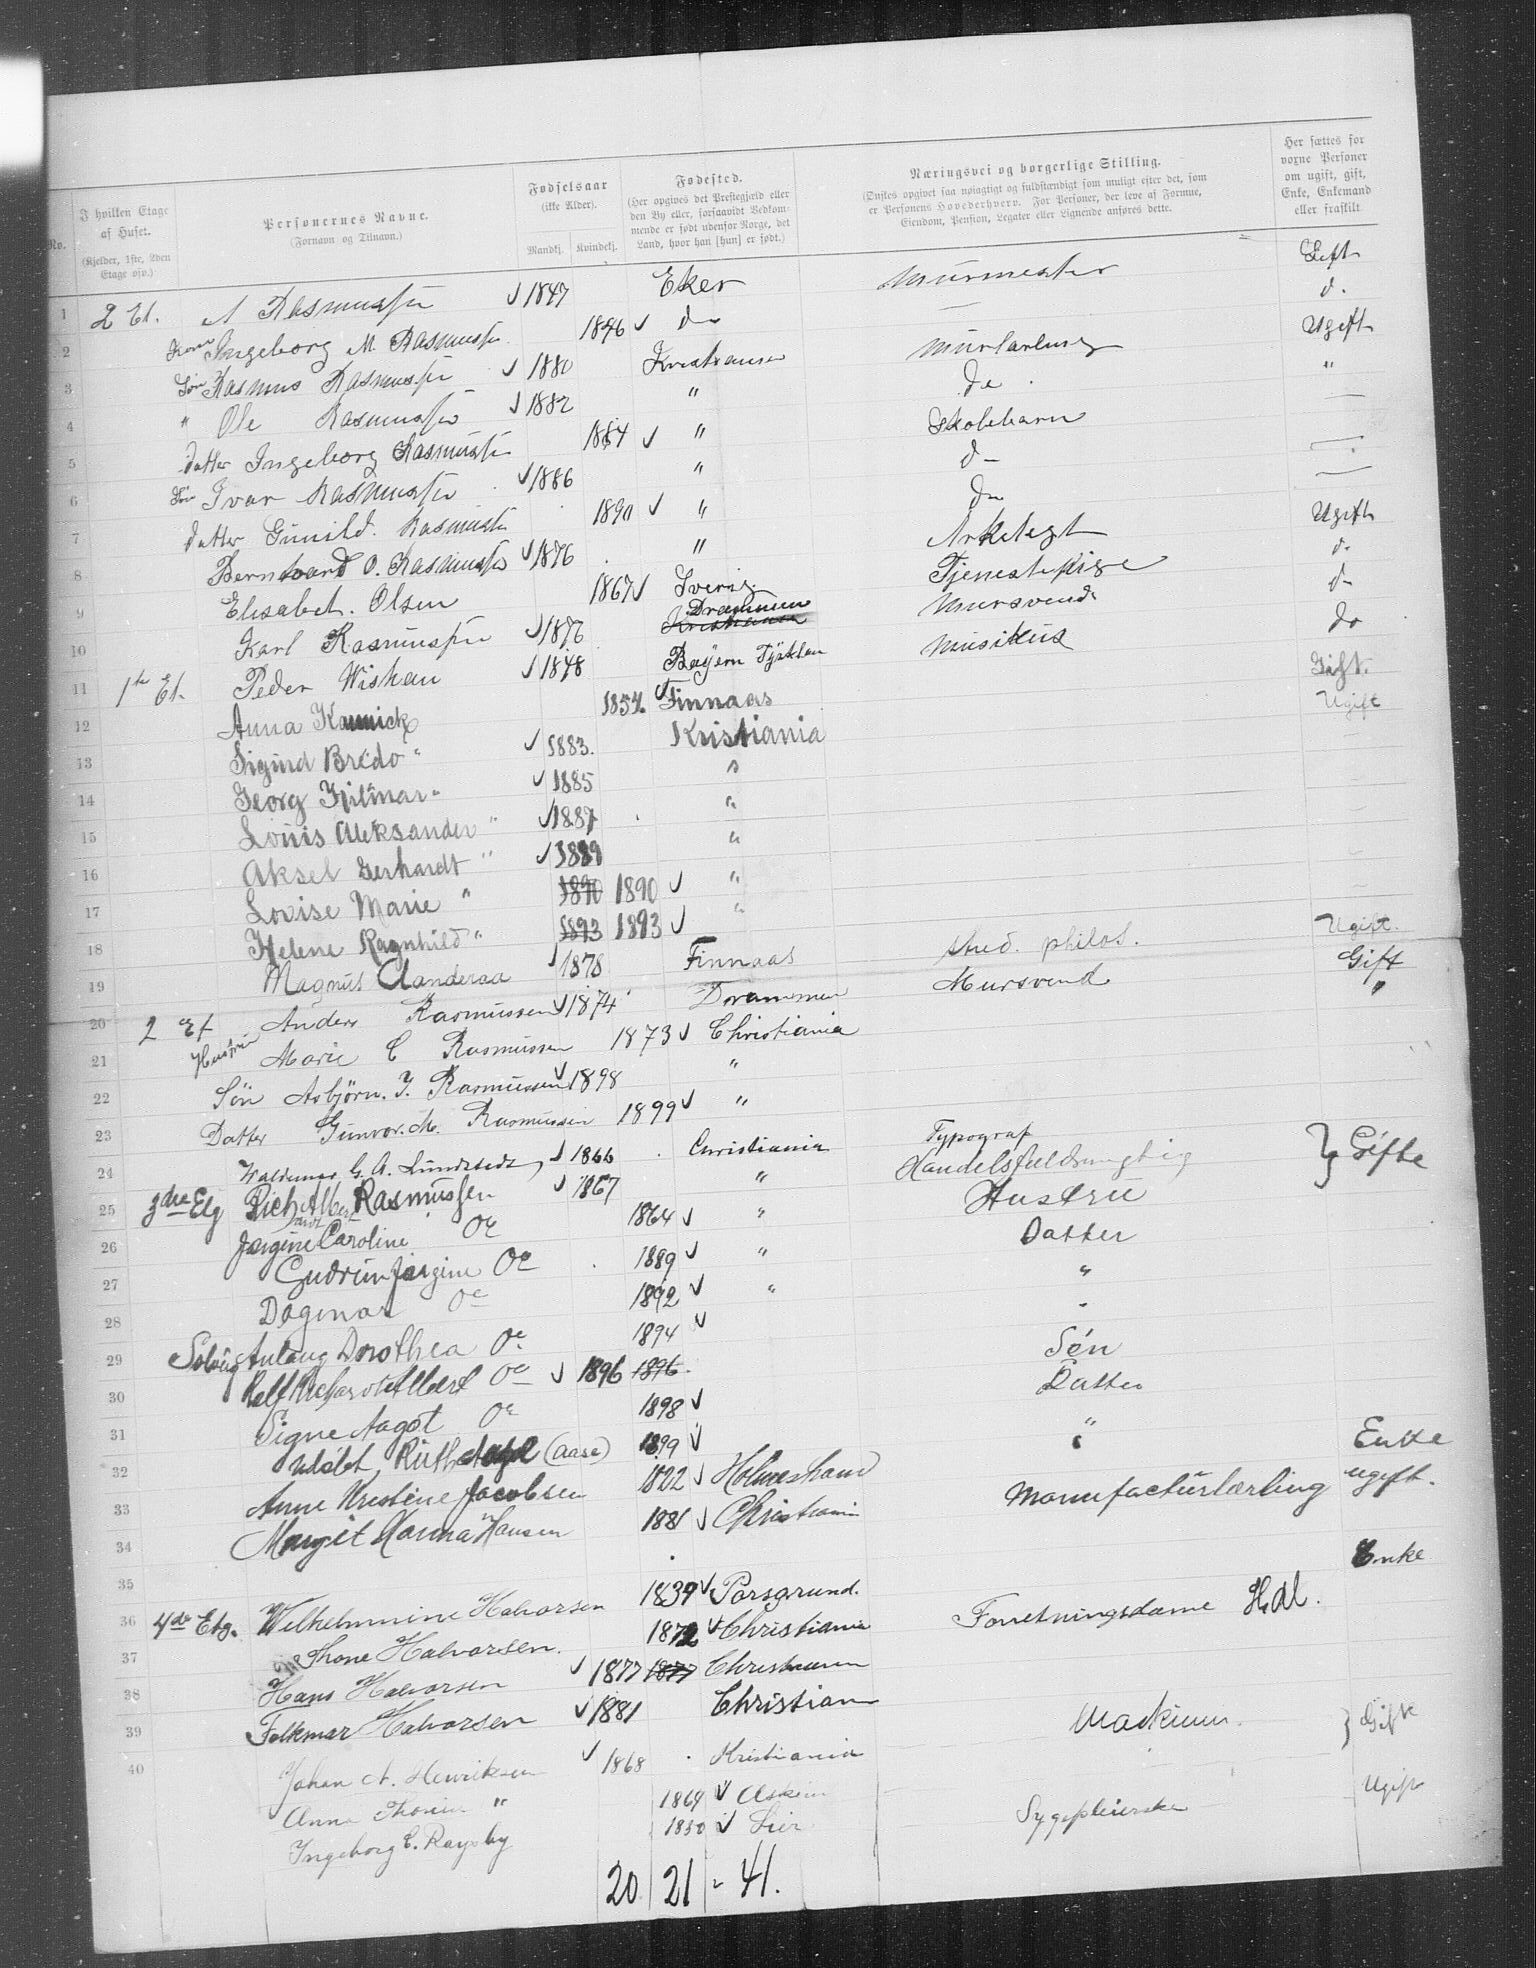 No.
I hvilken Etage af Huset.
(Kjelder, 1ste, 2den Etage osv.)
Personernes Navne.
(Fornavn og Tilnavn.)
Fødselsaar
(ikke Alder).
Mandkj. Kvindekj.
Fødested.
(Her opgives det Prestegjeld eller den By eller, forsaavidt Vedkommende er født udenfor Norge, det Land, hvor han [hun] er født.)
Næringsvei og borgerlige Stilling.
(Ønskes opgivet saa nøiagtigt og fuldstændigt som muligt efter det, som er Personens Hovederhverv. For Personer, der leve af Formue, Eiendom, Pension, Legater eller Lignende anføres dette.
Her sættes for voxne Personer om ugift, gift, Enke, Enkemand eller fraskilt.
1 2 Et. A Rasmussen 1847 Eker Murmester Gift
2 Kone Ingeborg M. Rasmussen 1846 do — d.
3 Søn Rasmus Rasmussen 1880 Kristiania Murlærling Ugift
4 " Ole Rasmussen 1882 " do "
5 Datter Ingeborg Rasmussen 1884 " Skolebarn —
6 Søn Ivar Rasmussen 1886 " d— —
7 Datter Gunild. Rasmussen 1890 " do —
8 Berntvard O. Rasmussen 1876 " Arkitegt Ugift
9 Elisabet. Olsen 1867 Sverig Tjenestepige d.
10 Karl Rasmussen 1876 Drammen Mursvend do
11 1ste Et. Peder Wishan 1848 Bayern Tyskland Musikus do
12 Anna 1857 Finnaas Gift.
13 Sigurd Bredo " 1883. Kristiania Ugift
14 Georg Hilmar " 1885 "
15 Louis Aleksander " 1887 "
16 Aksel Gerhardt " 1889 "
17 Lovise Marie " 1890 1890 "
18 Helene Ragnhild " 1893 1893 "
19 Magnus Aanderaa 1878 Finnaas stud. philos. Ugift.
20 2 Et Anders Rasmussen 1874 Drammen Mursvend Gift
21 Hustru Marie C Rasmussen 1873 Christiania "
22 Søn Asbjørn. I. Rasmussen 1898 "
23 Datter Gunvor. M. Rasmussen 1899 "
24 Waldemar G. A. Lundstedt 1866 Christiania Typograf
25 3die Etg Rich Albert Rasmussen 1867 " Handelsfuldmægtig } Gifte
26 Jørgine Caroline do 1864 " Hustru
27 Gudrun Jørgine do 1889 " Datter
28 Dagmar do 1892 " "
29 Solveig Aulaug Dorothea do 1894 "
30 Ralf Richard Albert do 1896 1896 Søn
31 Signe Aagot do 1898 Datter
32 Udøbt Ruth (Aase) 1899 "
33 Anne Kristine Jacobsen 1822 Holmestrand Enke
34 Margit Karma Hansen 1881 Christiania Manufacturlærling ugift.
35
36 4de Etg. Wilhelmmine Halvorsen 1839 Porsgrund. Enke
37 Thone Halvorsen. 1872 Christiania Forretningsdame Hdl.
38 Hans Halvorsen 1877 1877 Christiania
39 Folkmar Halvorsen 1881 Christian
40 Johan A. Henriksen 1868 Kristiania Maskinm. } Gifte
Anna " 1869 Askim
Ingeborg E. Raysby 1850 Lier Sygepleierske Ugift
20 21 = 41.